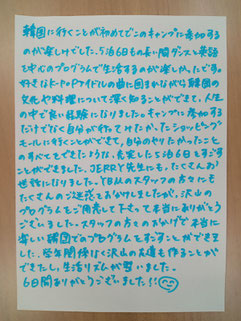 韓国に行くことが初めてでこのキャンプに参加する
のが楽しみでした。5泊6日もの長い間ダンスと英語
を中心のプログラムで生活するのが楽しかったです。
好きなK-POPアイドルの曲に囲まれながら韓国の
文化や料理について深く知ることができて、人生
の中で良い経験になりました。キャンプに参加する
だけでなく自分が行ってみたかったショッピング
モールに行くことができて、自分のやりたかったこと
のすべてをできたような、充実した5泊6日をすごす
ことができました。JERRY先生にも、たくさんお
世話になりました。YBMのスタッフの方々にも
たくさんのご迷惑をおかけしましたが、沢山の
プログラムをご用意して下さって本当にありがとうご
ざいました。スタッフの方々のおかげで本当に
楽しい韓国でのプログラムをすごすことができま
した。学年関係なく沢山の友達も作ることが
できたし、生活リズムが整いました。
6日間ありがとうございました!!